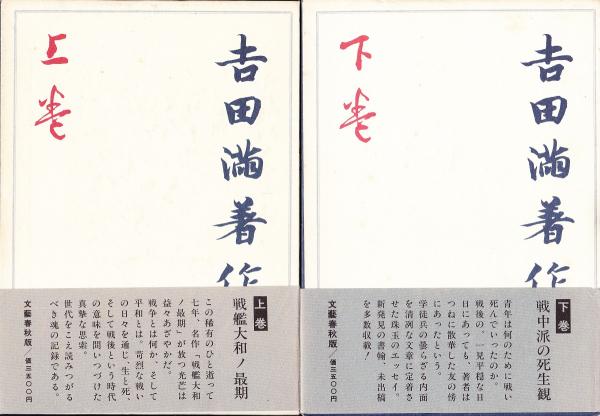 上巻
吉田満著作
上巻
戦艦大和ノ最期
この稀有のひと逝って
七年、名作「戦艦大和
ノ最期」が放つ光芒は
益々あざやかだ。
戦争とは何か、そして
平和とは。苛烈な戦い
の日々を通じ、生と死、
そして戦後という時代
の意味を問いつづけた
真摯な思索。
世代をこえ読みつがる
べき魂の記録である。
文藝春秋版/価三五〇〇円
下巻
吉田満著作
下巻
戦中派の死生観
青年は何のために戦い
死んでいったのか。
戦後の、一見平穏な日
日にあっても、著者は
つねに散華した友の傍
にあったという。
学徒兵の曇らざる内面
を清冽な文章に定着さ
せた珠玉のエッセイ。
新発見の書翰、未出稿
を多数収載!
文藝春秋版/価三五〇〇円